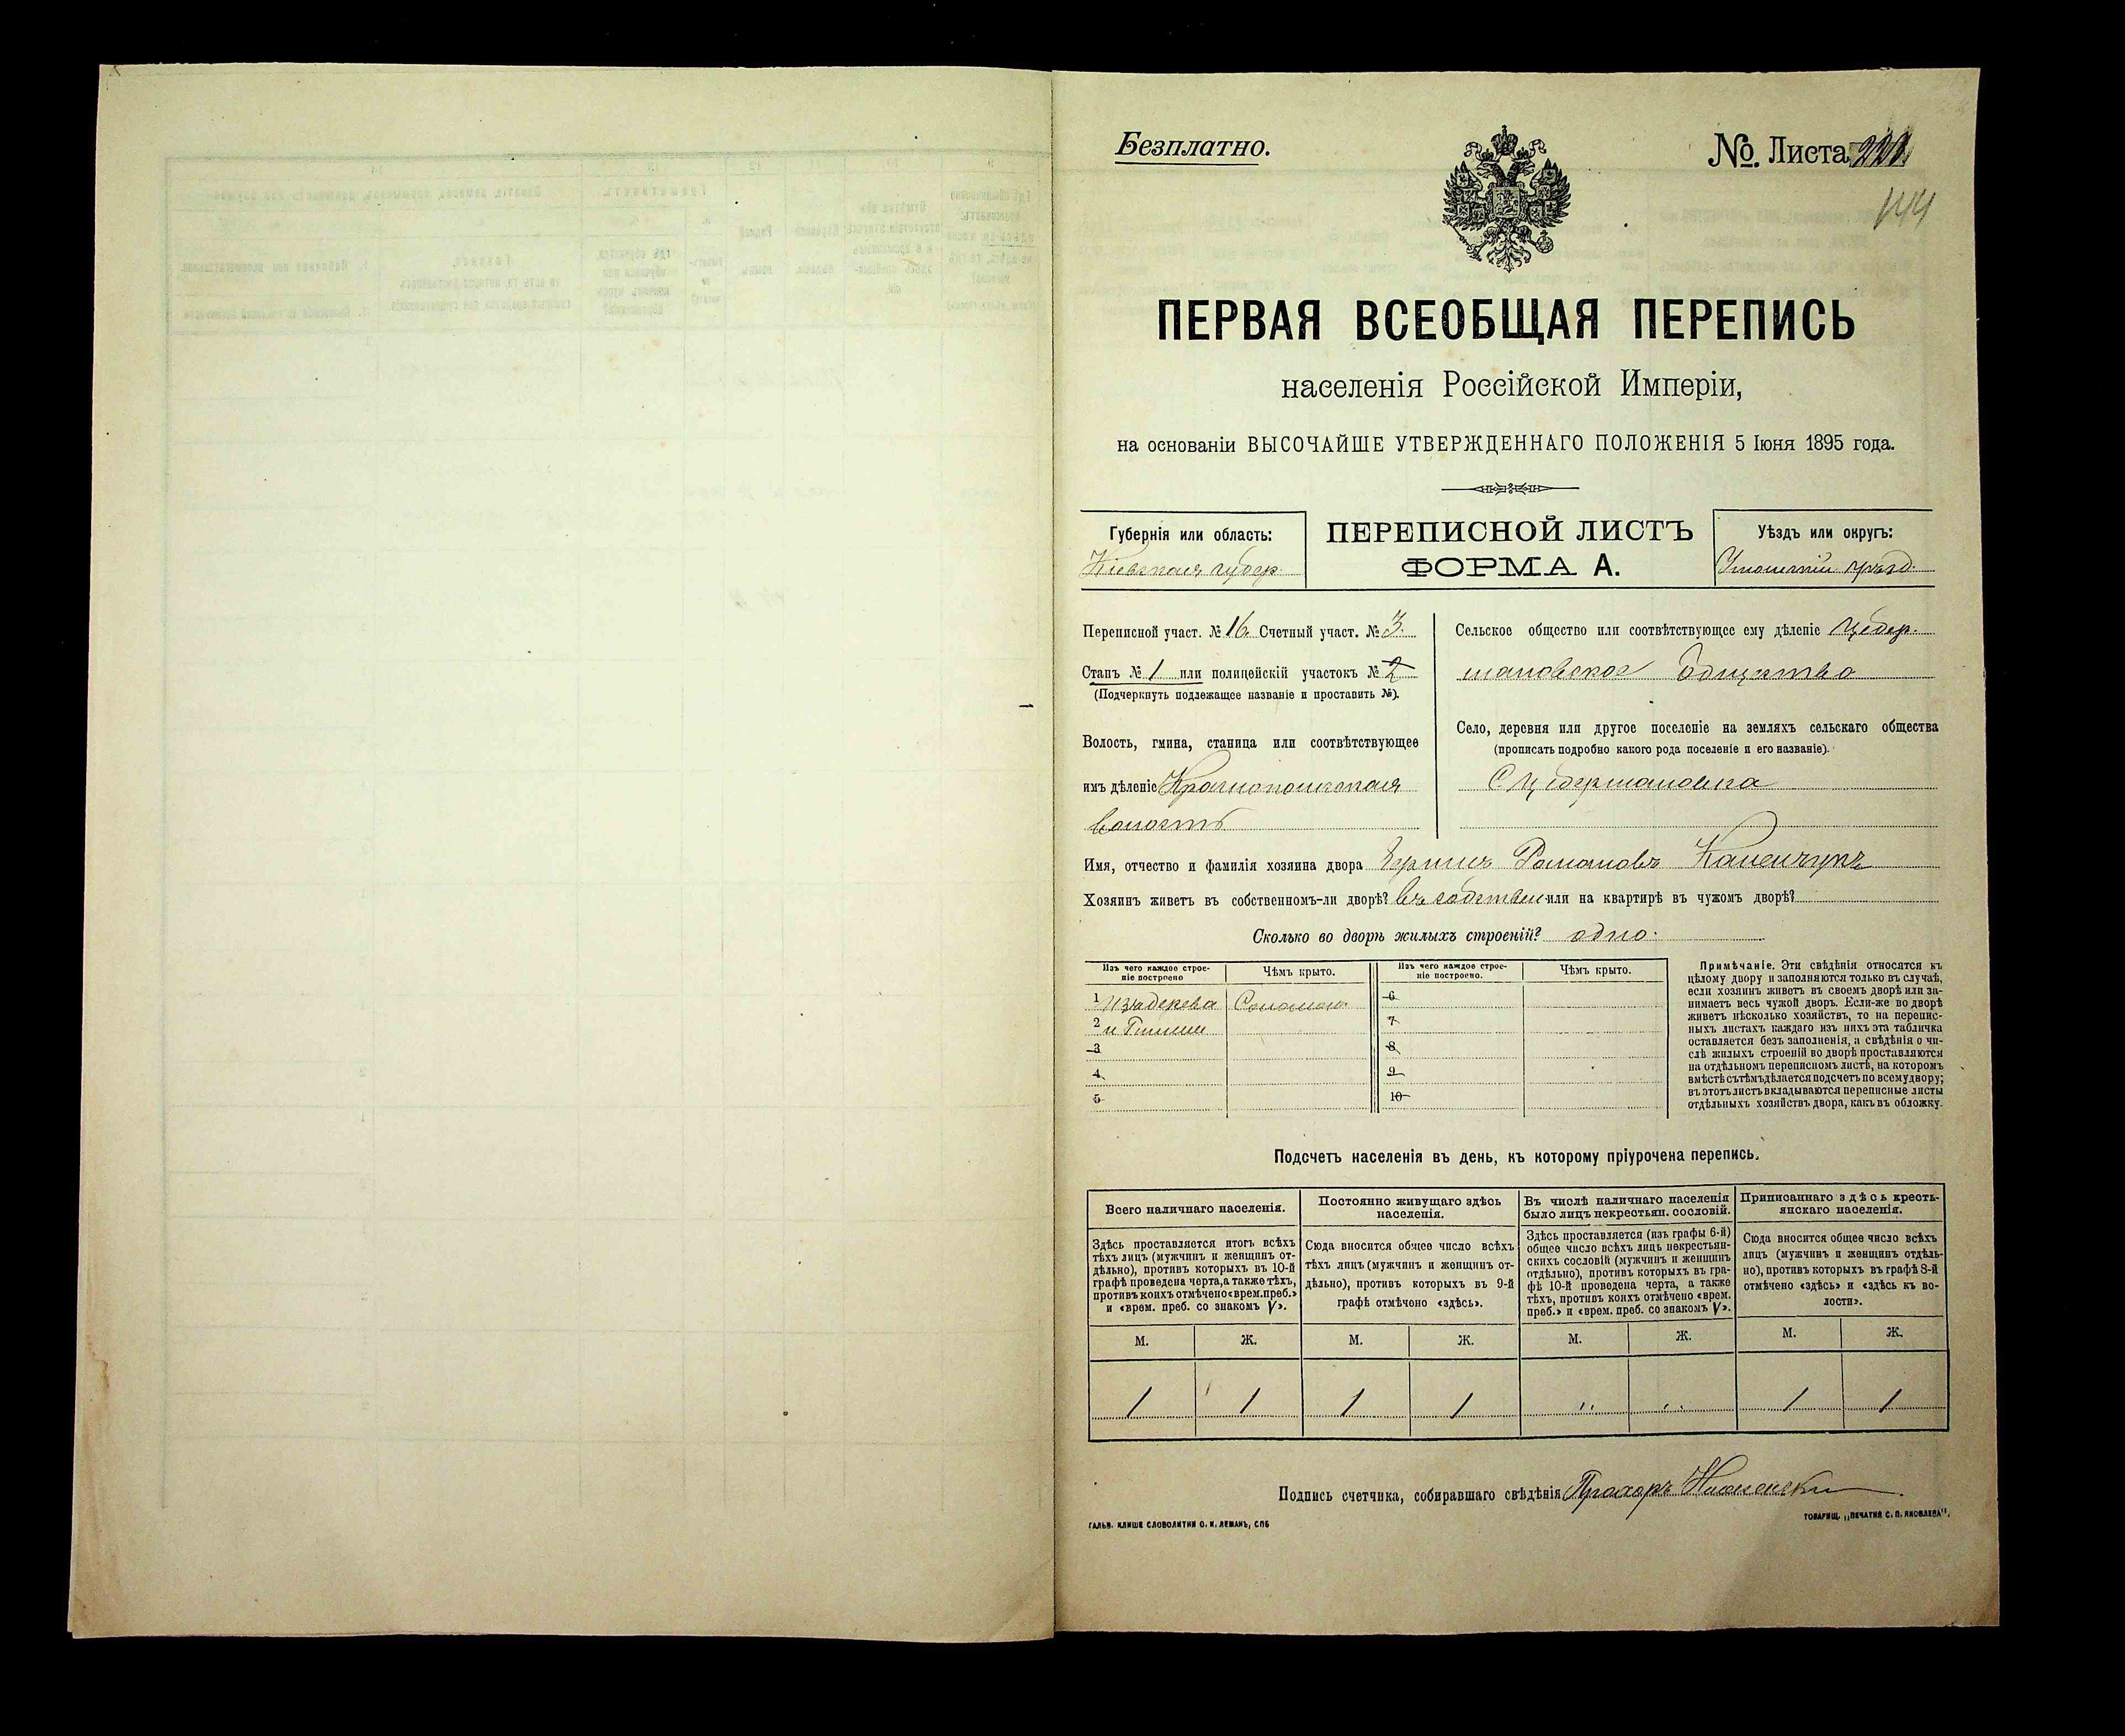 Безплатно.
№. Листа 222.
144
ПЕРВАЯ ВСЕОБЩАЯ ПЕРЕПИСЬ
населенія Россійской Имперіи,
на основаніи ВЫСОЧАЙШЕ УТВЕРЖДЕННАГО ПОЛОЖЕНІЯ 5 Іюня 1895 года.
Губернія или область:
Кіевская губер.
ПЕРЕПИСНОЙ ЛИСТЪ
ФОРМА А.
Уѣздъ или округъ:
Уманскій уѣзд.
Переписной участ. № 16. Счетный участ. № 3.
Станъ № 1 или полицейскій участокъ № 2
(Подчеркнуть подлежащее названіе и проставить №).
Волость, гмина, станица или соотвѣтствующее
имъ дѣленіе Краснопольская
волость
Сельское общество или соотвѣтствующее ему дѣленіе Цебер-
мановское Общество
Село, деревня или другое поселеніе на земляхъ сельскаго общества
(прописать подробно какого рода поселеніе и его названіе).
С Цебермановка
Имя, отчество и фамилія хозяина двора Романовъ
Хозяинъ живетъ въ собственномъ-ли дворѣ? въ собствен или на квартирѣ въ чужомъ дворѣ?
Сколько во дворѣ жилыхъ строеній? одно.
Изъ чего каждое строе-
ніе построено
Чѣмъ крыто.
Изъ чего каждое строе-
ніе построено.
Чѣмъ крыто.
1 Изъ дерева Соломою
2 и Глины
3
4
5
6
7
8
9
10
Примѣчаніе. Эти свѣдѣнія относятся къ
цѣлому двору и заполняются только въ случаѣ,
если хозяинъ живетъ въ своемъ дворѣ или за-
нимаетъ весь чужой дворъ. Если-же во дворѣ
живетъ нѣсколько хозяйствъ, то на перепис-
ныхъ листахъ каждаго изъ нихъ эта табличка
оставляется безъ заполненія, а свѣдѣнія о чи-
слѣ жилыхъ строеній во дворѣ проставляются
на отдѣльномъ переписномъ листѣ, на которомъ
вмѣстѣ съ тѣмъ дѣлается подсчетъ по всему двору;
въ этотъ листъ вкладываются переписные листы
отдѣльныхъ хозяйствъ двора, какъ въ обложку.
Подсчетъ населенія въ день, къ которому пріурочена перепись.
Всего наличнаго населенія.
Постоянно живущаго здѣсь
населенія.
Въ числѣ наличнаго населенія
было лицъ некрестьян. сословій.
Приписаннаго здѣсь кресть-
янскаго населенія.
Здѣсь проставляется итогъ всѣхъ
тѣхъ лицъ (мужчинъ и женщинъ от-
дѣльно), противъ которыхъ въ 10-й
графѣ проведена черта, а также тѣхъ,
противъ коихъ отмѣчено «врем. преб.»
и «врем. преб. со знакомъ V».
Сюда вносится общее число всѣхъ
тѣхъ лицъ (мужчинъ и женщинъ от-
дѣльно), противъ которыхъ въ 9-й
графѣ отмѣчено «здѣсь».
Здѣсь проставляется (изъ графы 6-й)
общее число всѣхъ лицъ некрестьян-
скихъ сословій (мужчинъ и женщинъ
отдѣльно), противъ которыхъ въ гра-
фѣ 10-й проведена черта, а также
тѣхъ, противъ коихъ отмѣчено «врем.
преб.» и «врем. преб. со знакомъ V».
Сюда вносится общее число всѣхъ
лицъ (мужчинъ и женщинъ отдѣль-
но), противъ которыхъ въ графѣ 8-й
отмѣчено «здѣсь» и «здѣсь къ во-
лости».
М. Ж. М. Ж. М. Ж. М. Ж.
1 1 1 1 " " 1 1
Подпись счетчика, собиравшаго свѣдѣнія Прохоръ
ГАЛЬВ. КЛИШЕ СЛОВОЛИТНИ О. И. ЛЕМАНЪ, СПБ
ТОВАРИЩ. „ПЕЧАТНЯ С. П. ЯКОВЛЕВА".